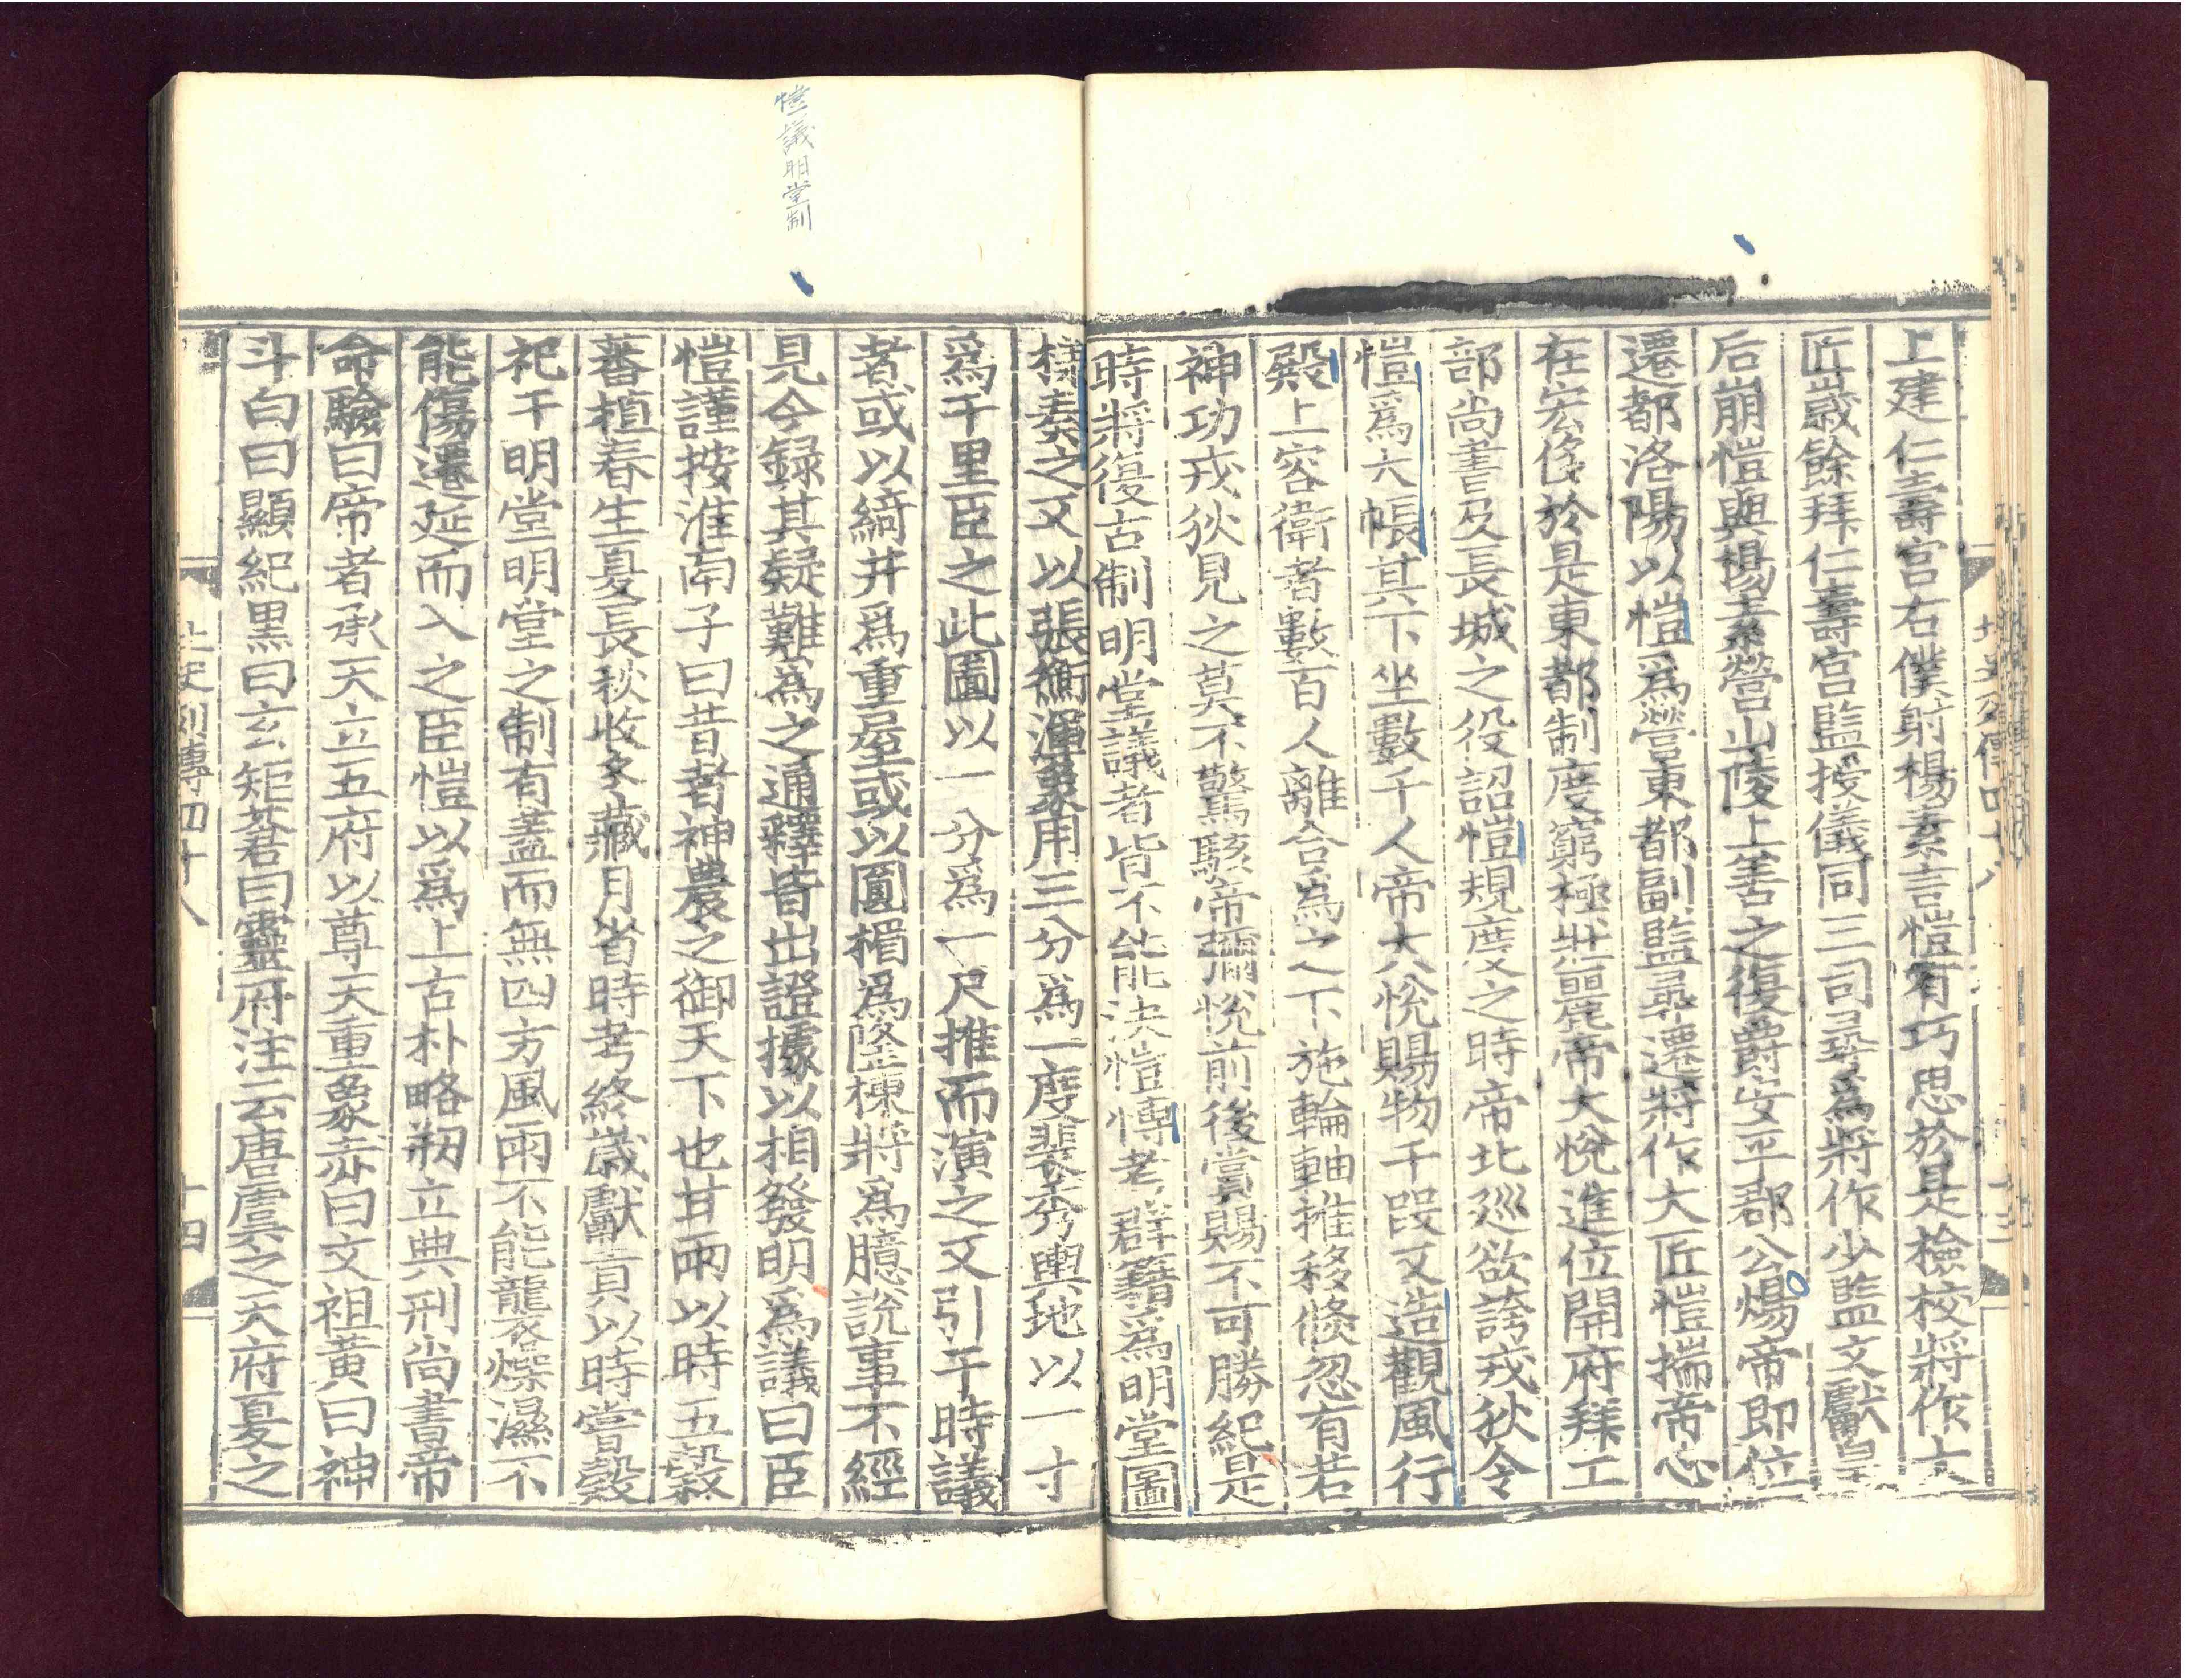 上建仁壽宮右僕射楊素言愷有巧思於是檢校將作大
匠歲餘拜仁壽宮監授儀同三司尋爲將作少監文獻皇
后崩愷與楊素營山陵上善之復爵安平郡公煬帝即位
遷都洛陽以愷爲營東都副監尋遷將作大匠愷揣帝心
在宏侈於是東都制度窮極壯麗帝大悅進位開府拜工
部尚書及長城之役詔愷規度之時帝北巡欲誇戎狄令
愷爲大帳其下坐數千人帝大悅賜物千段又造觀風行
殿上容衛者數百人離合爲之下施輪軸推移倏忽有若
神功戎狄見之莫不驚駭帝彌悅前後賞賜不可勝紀是
時將復古制明堂議者皆不能決愷博考群籍爲明堂圖
樣奏之又以張衡渾象用三分爲一度裴秀輿地以一寸
爲千里臣之此圖以一分爲一尺推而演之又引于時議
者或以綺井爲重屋或以圓楣爲隆棟將爲臆說事不經
見今録其疑難爲之通釋皆出證據以相發明爲議曰臣
愷謹按淮南子曰昔者神農之御天下也甘雨以時五穀
蕃植春生夏長秋收冬藏月省時考終歲獻貢以時嘗穀
祀于明堂明堂之制有蓋而無四方風雨不能襲燥濕不
能傷遷延而入之臣愷以爲上古朴略刱立典刑尚書帝
命驗曰帝者承天立五府以尊天重象赤曰文祖黃曰神
斗白曰顯紀黑曰玄矩蒼曰靈府注云唐虞之天府夏之
北史列傳四十八
十四
愷議明堂制